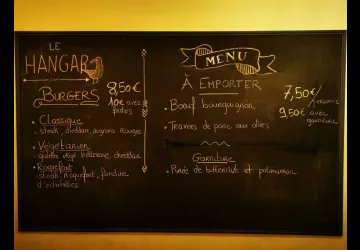 LE
HANGAR
BURGERS
8,50€
10€ avec
frites
• Classique
steak, cheddar, oignons rouges
• Végétarien
galette végé betterave, cheddar
• Roquefort
steak, roquefort, fondue
d'échalotes
MENU
À EMPORTER
• Bœuf bourguignon
• Travers de porc aux olives
7,50€
/personne
9,50€ avec
garniture
Garniture
• Purée de butternut et potimarron